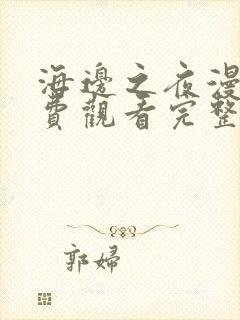 海邊之夜漫
費觀看完整
郭婦